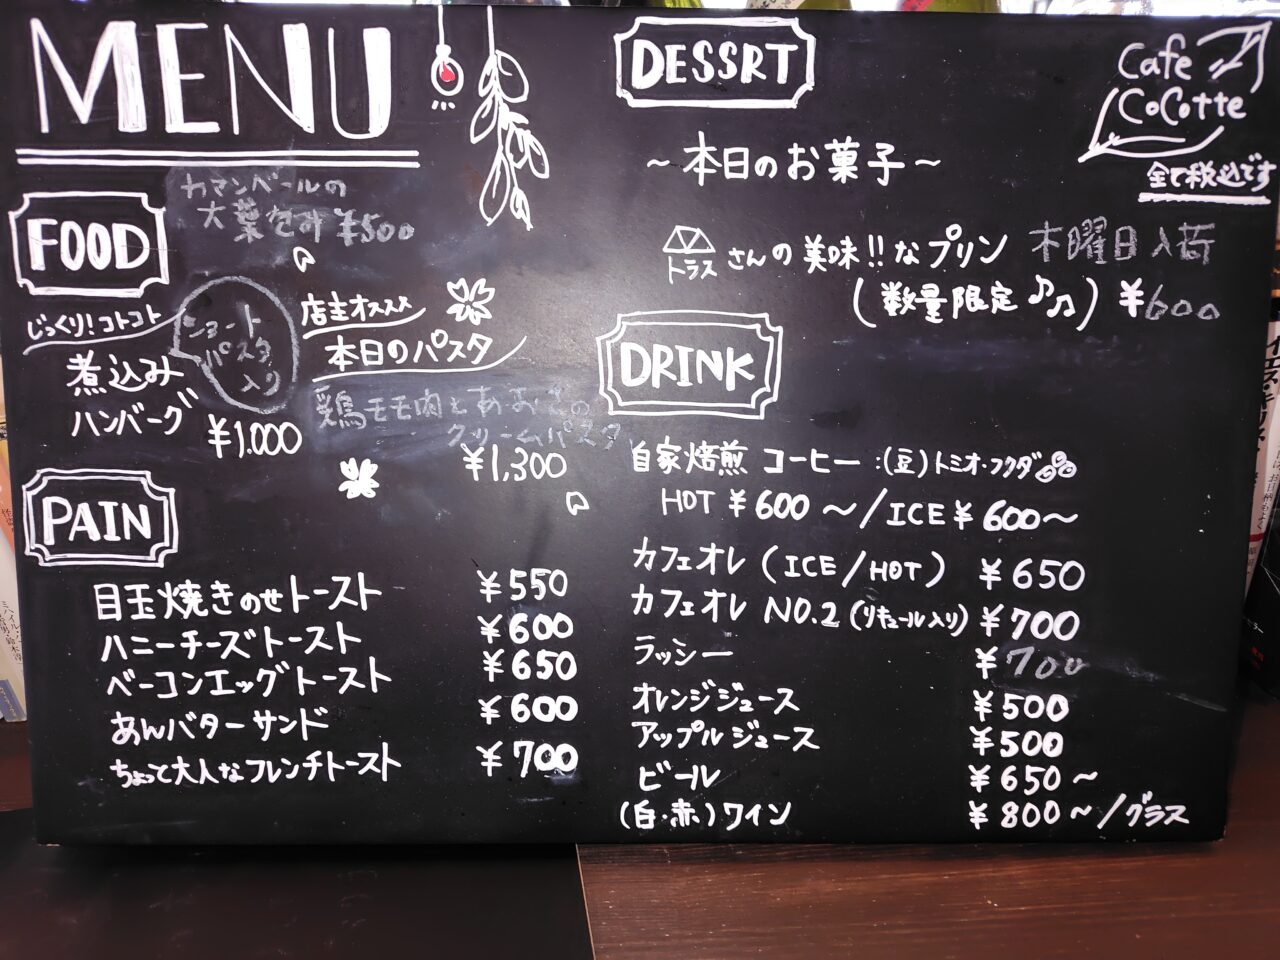 MENU
FOOD
カマンベールの
大葉包み ¥500
じっくり!コトコト
煮込み
ハンバーグ
ショート
パスタ
入り
¥1.000
店主オススメ
本日のパスタ
鶏モモ肉とあおさの
クリームパスタ
¥1,300
PAIN
目玉焼きのせトースト ¥550
ハニーチーズトースト ¥600
ベーコンエッグトースト ¥650
あんバターサンド ¥600
ちょって大人なフレンチトースト ¥700
DESSRT
Cafe
CoCotte
全て税込です
~本日のお菓子~
トラスさんの美味!!なプリン 木曜日入荷
(数量限定♪♫) ¥600
DRINK
自家焙煎 コーヒー:(豆)トミオ・フクダ
HOT ¥600~/ICE ¥600~
カフェオレ (ICE/HOT) ¥650
カフェオレ NO.2 (リキュール入り) ¥700
ラッシー ¥700
オレンジジュース ¥500
アップルジュース ¥500
ビール ¥650~
(白・赤)ワイン ¥800~/グラス